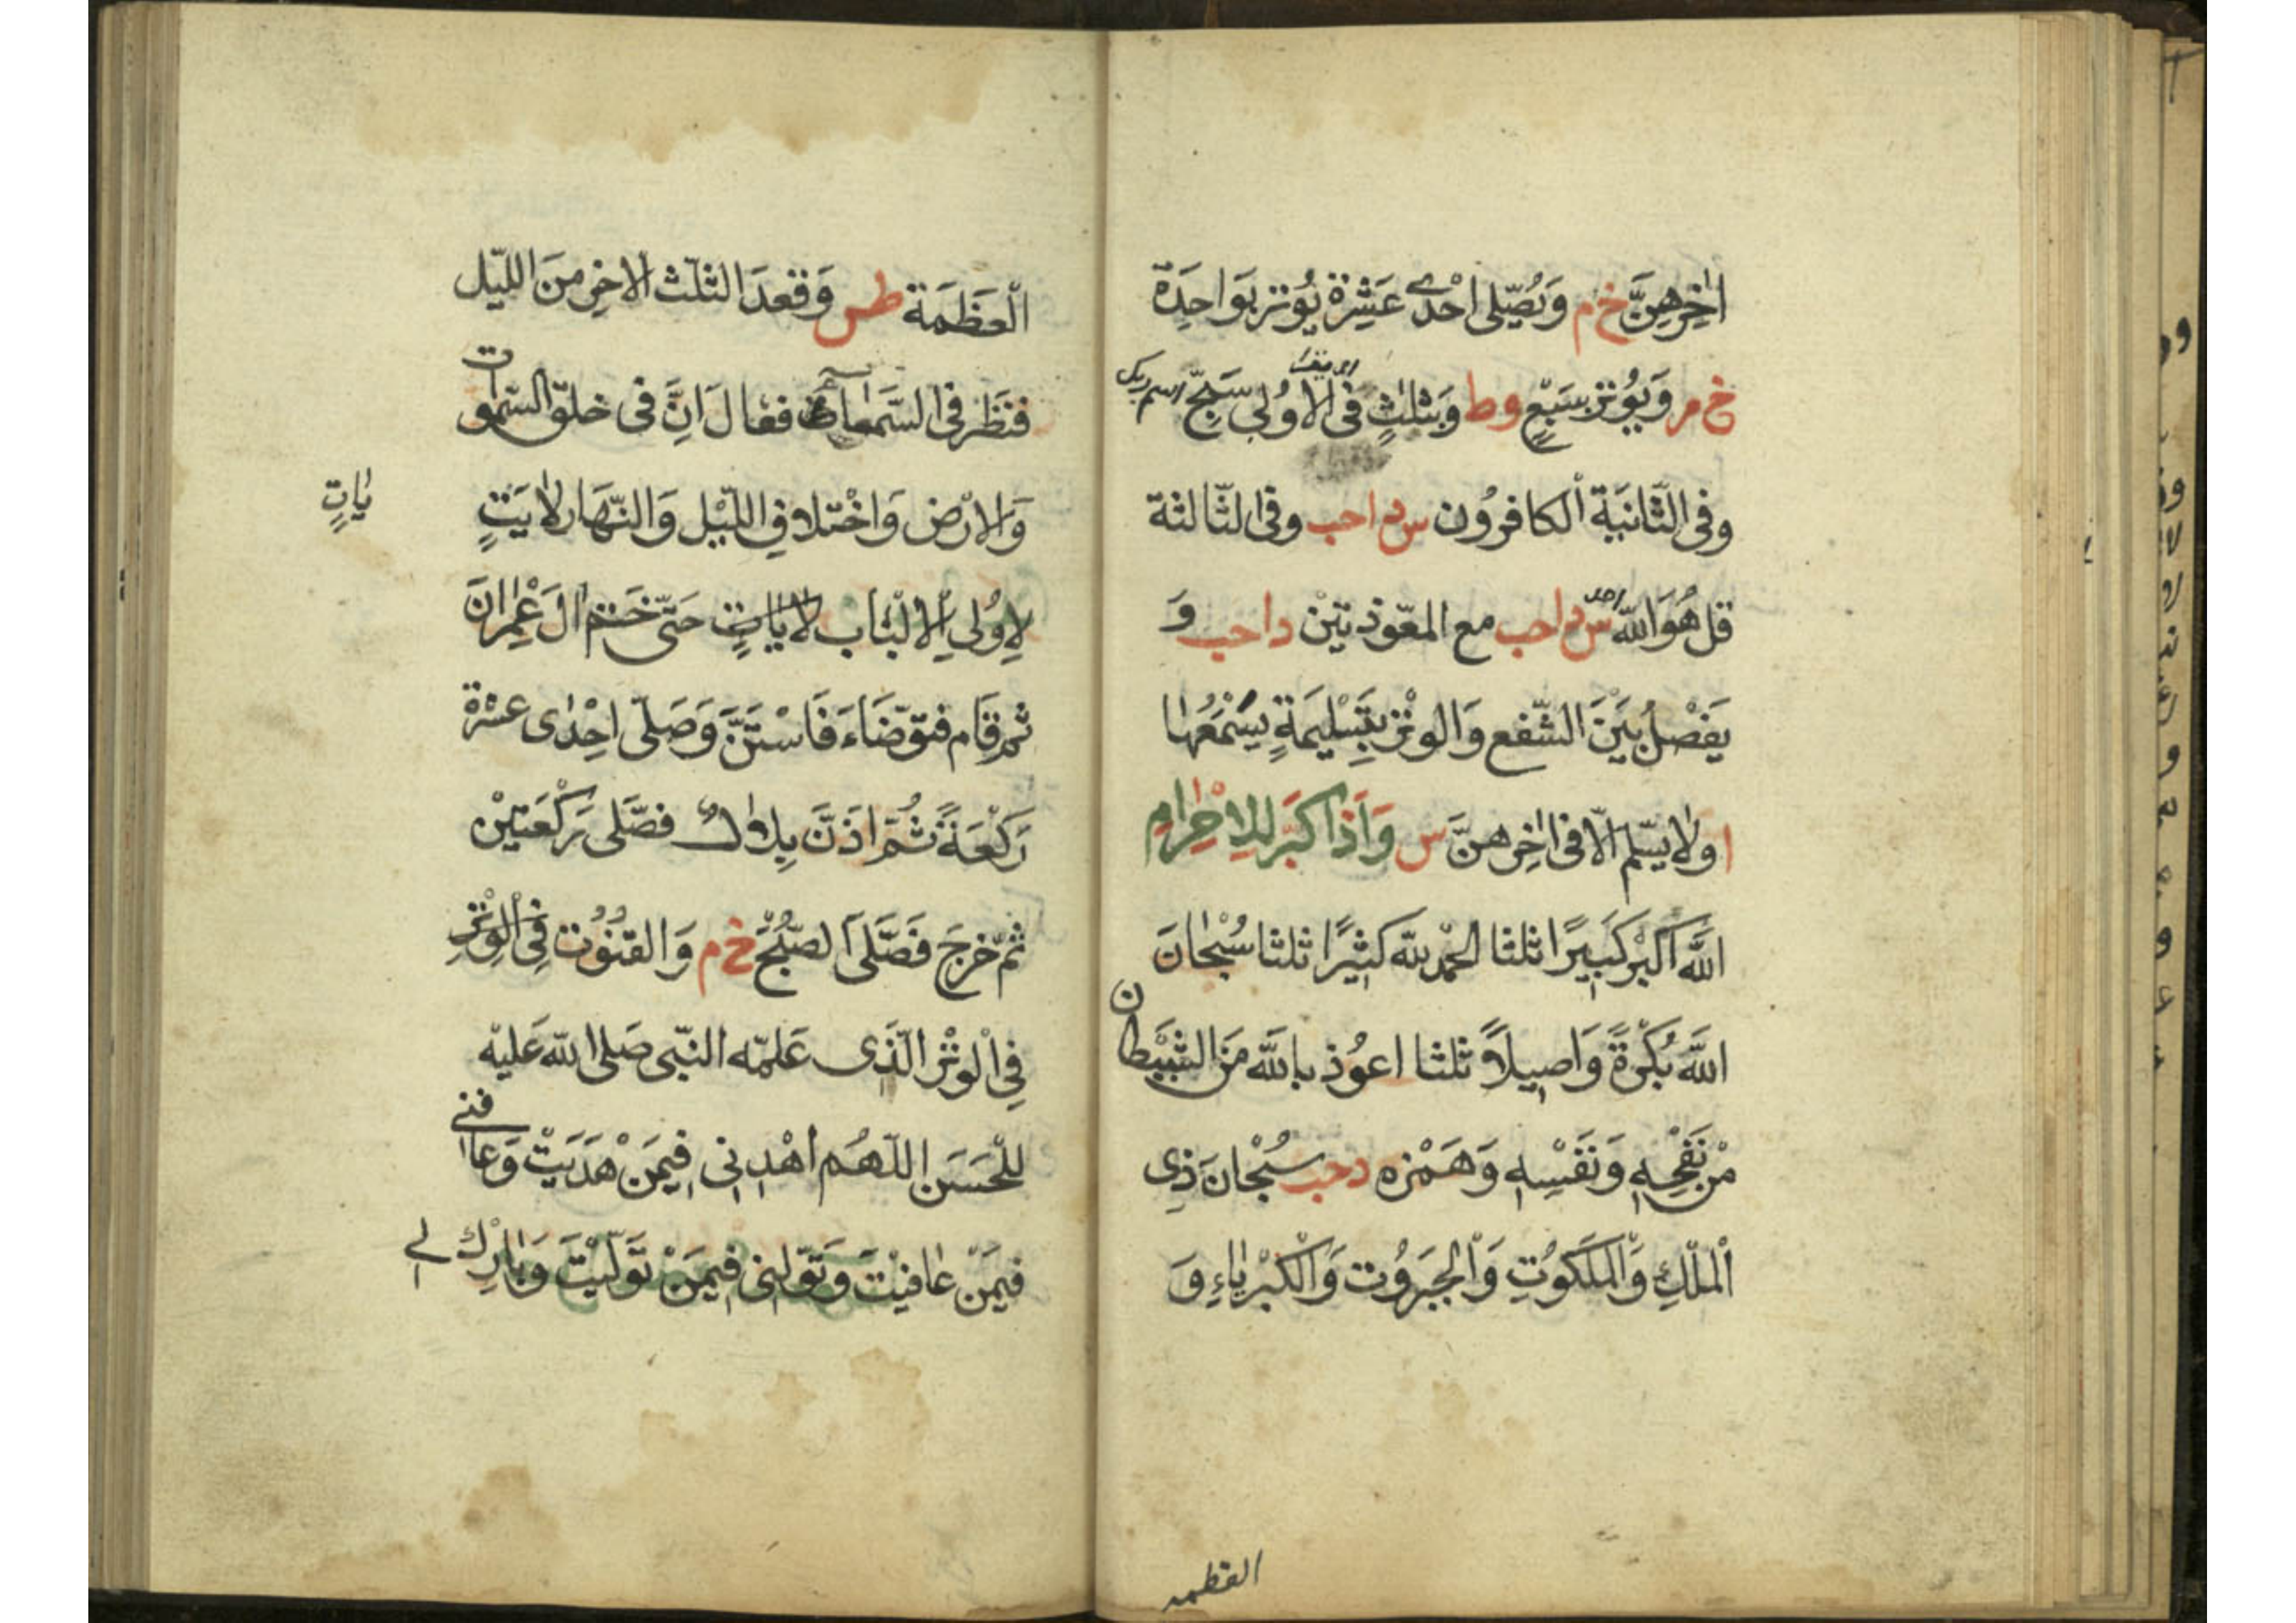 اٰخِرِهِنَّ خ م وَيُصَلّى اِحْدٰى عَشِرَةَ يُوتر بِوَاحِدَة
خ م وَيُوتر بسَبْعٍ و ط وَبثلٰثٍ فى الاوُلى سَبّحِ اسم ربك
وفى الثّانيَة الكافرُون س د ا حب وفى الثّالثة
قل هُوَ اللّٰه احد س د ا حب مع المعّوذتيْن د ا حب وَ
يَفْصلُ بَيْنَ الشّفع وَالوتْر بتَسْلِيمَةٍ يُسْمَعُهٰا
ا ولٰا يسَلّم الّا فى اٰخِرهنَّ س وَاذَا كبَّر لِلاِحْرٰامِ
اللّٰه اكْبرُ كَبِيرًا ثلثا الحَمْد للّٰه كثيْرًا ثلثا سُبْحٰانَ
اللّٰه بُكْرَةً وَاصِيلاً ثلثا اعوُذ باللّٰه مَنِ الشَّيْطان
مْن نَفْخِهِ وَنَفْسِهِ وَهَمْزه د حب سُبْحٰانَ ذِى
الْملْكِ وَالْملَكوُتِ وَالْجبَروُت وَالْكبْريٰاءِ وَ
العظمه
الْعَظَمَة طس وَقعدَ الثلُث الاخِر منَ اللّيْل
فنَظَر فى السَّمَاء فقالَ اِنَّ فى خلق السّمٰوات
وَالارْض وَاخْتلاف اللّيْل وَالنّهَار لاٰيَتٍ
يٰاتٍ
لِاوُلى الالْبٰاب لاٰيٰاتٍ حَتّى خَتم اٰلَ عِمْرٰانَ
ثمّ قَام فتوَضّاءَ فَاسْتَنَّ وَصَلّى احِدٰى عشرَة
رَكْعَةً ثُمّ اذَنَّ بِلاٰلٌ فصَلّى رَكْعَتيْن
ثمّ خرجَ فصَلّى الصّبْحَ خ م وَالقنوُت فِى الْوِتْرِ
فِى الْوتْر الّذَى عَلمّه النّبى صَلى اللّٰه عَليْه
للْحَسَن اللّٰهُم اهْدِنى فيمَنْ هَدَيَتْ وَعافنى
فيمَنْ عٰافيْتَ وَتَوَلّنى فيمَنْ تَوَلّيْتَ وَبٰارِكْ لى